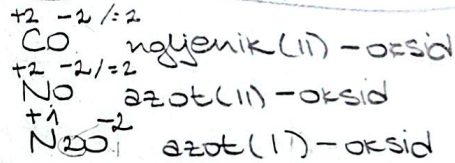 +2 -2 /:2
CO ugljenik(II)-oksid
+2 -2/:2
NO azot(II)-oksid
+1 -2
N2O azot(I)-oksid